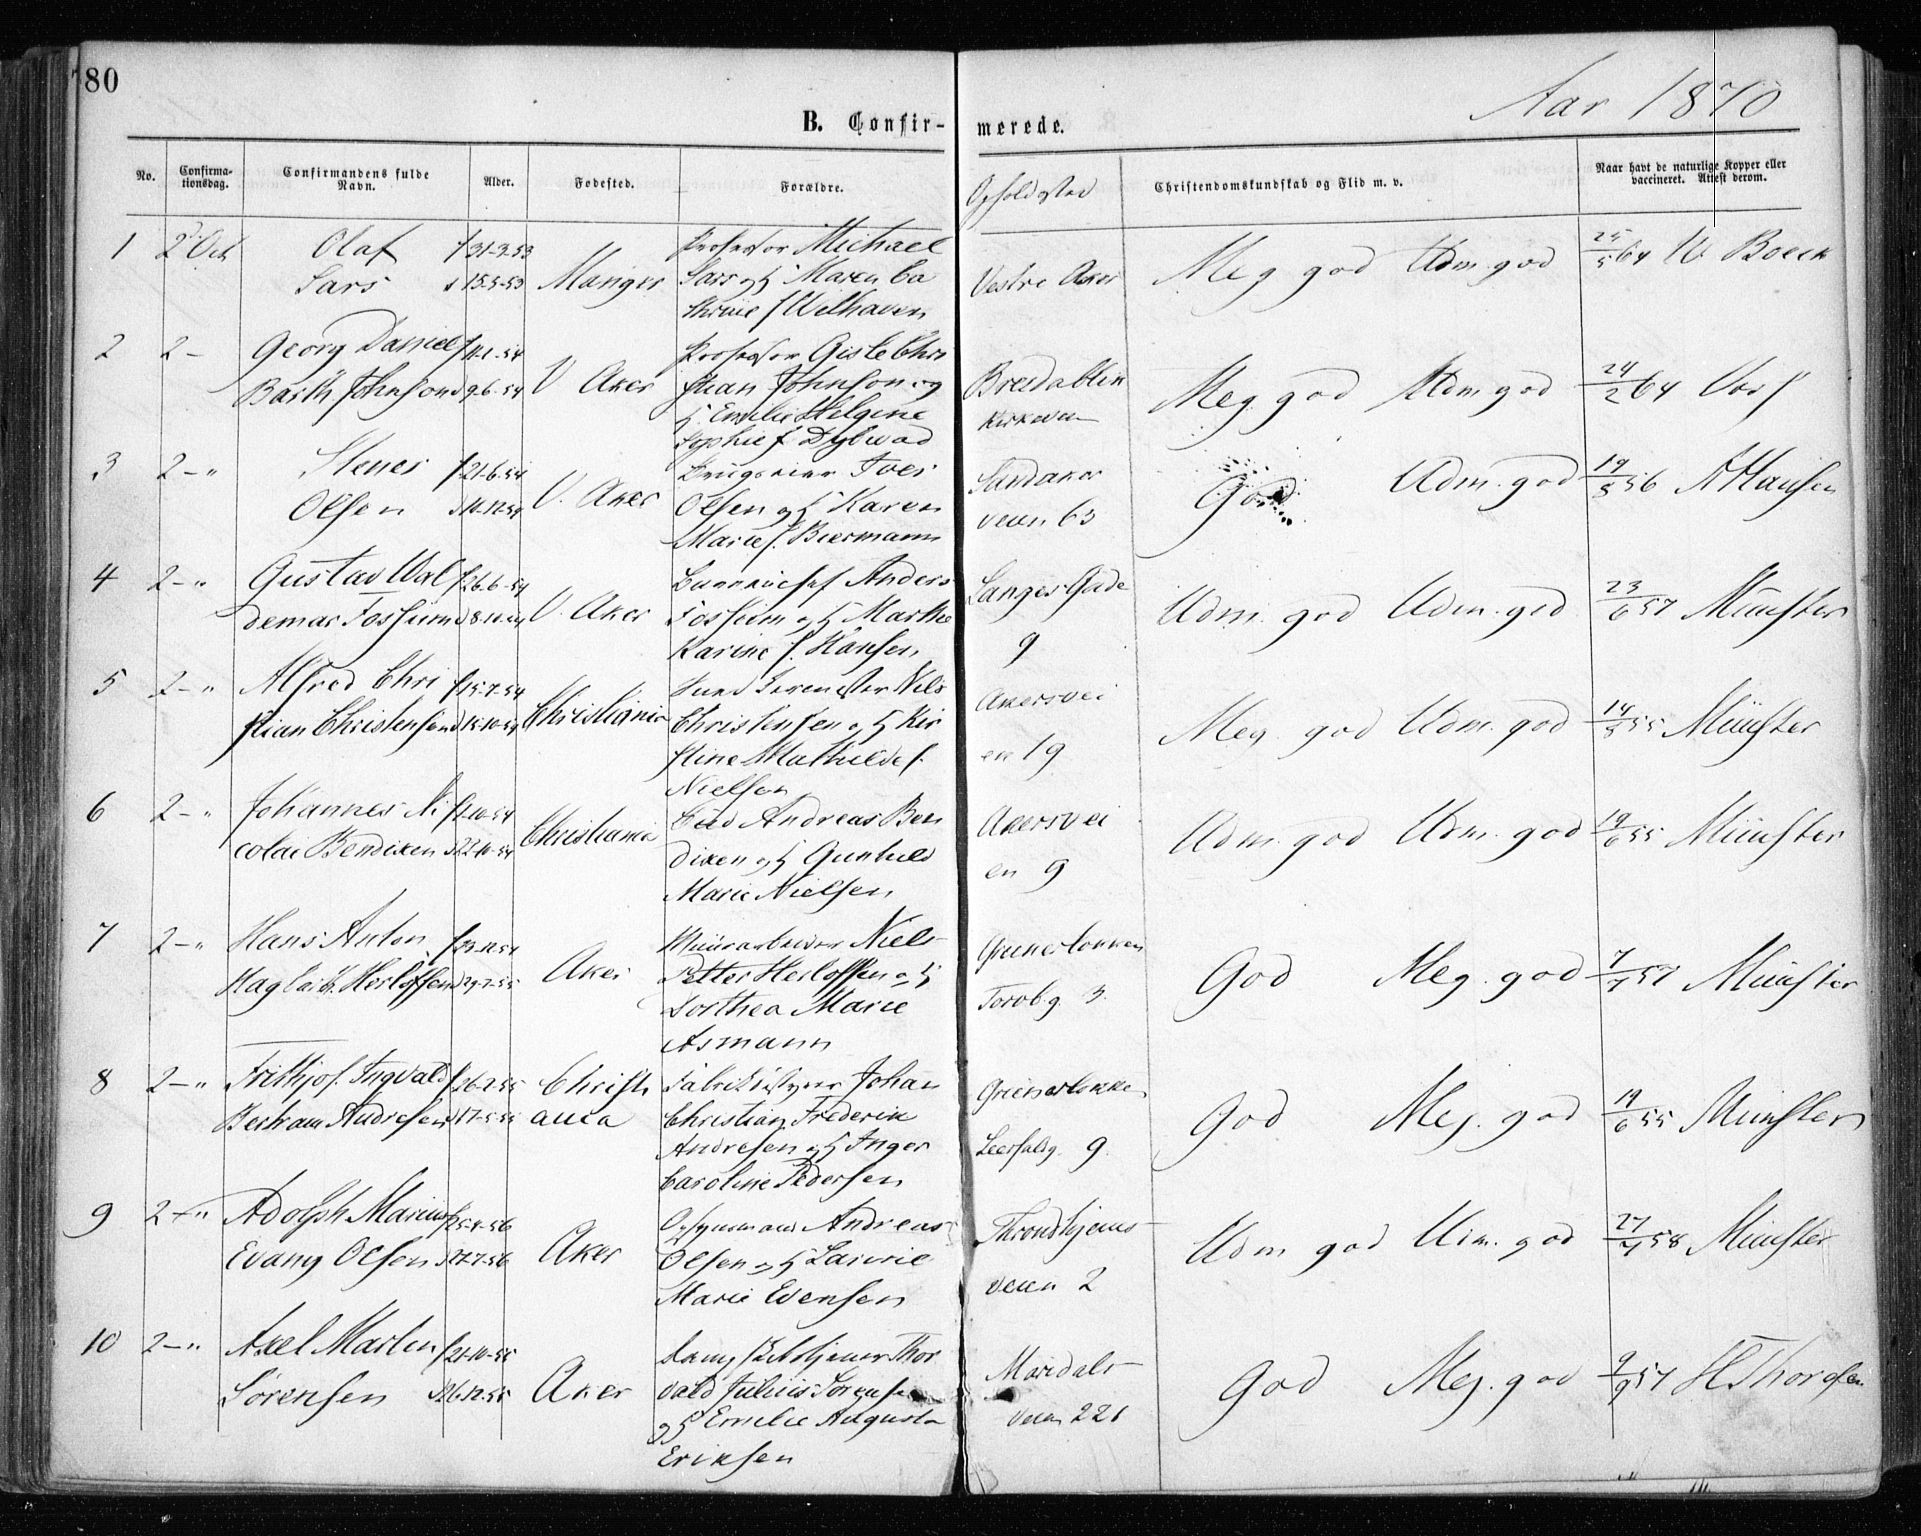 80
Aar 1870
B. Confir-
merede.
No.
Confirma-
tionsdag.
Confirmandens fulde
Navn.
Alder.
Fødested.
Forældre.
Opholdsted
Christendomskundskab og Flid m. v.
Naar havt de naturlige Kopper eller
vaccineret. Attest derom.
1 2 Oct Olaf f 31-3-53 Professor Michael
Sars d 15-5-53 Manger Sars og H Maren Ca
thrine f Welhaven
Vestre Aker Meg god Udm. god 25/5 64 Boeck
2 2 - Georg Daniel f 11-1-54 Professor Gisle Chri
Barth Johnson d 9-6-54 V Aker stian Johnson og
H. Emilie Helgine
Sophie f Dybwad
Bredablik
Kirkeveien
Meg. god Udm god 24/2 64 Voss
3 2 - " f 21-6-54 Iver
Olsen d 10-12-54 V. Aker Olsen og H Karen
Marie f. Biermann
Sandaker
veien 63
God Udm. god 19/8 56 Hansen
4 2 - " Gustav Wal f 26-6-54 Anders
demar Fossum V. Aker Fossum og H Marthe
Karine f. Hansen
Langes Gade
9
Udm. god Udm. god 23/6 57 Münster
5 2 - " Alfred Chri f 15-7-54 Nils
stian Christensen d 15-10-54 Christiania Christensen og H Kir
stine Mathilde f.
Nielsen
Akersvei
en 19
Meg. god Udm. god 14/8 55 Münster
6 2 - " Johannes Ni f 1-10-54 Andreas Ben
colai Bendixen d 22-10-54 Christiania dixen og H Gunhild
Marie Nielsen
Akersvei
en 9
Udm. god Udm. god 19/6 55 Münster
7 2 - " Hans Anton f 23-12-54 Murarbeider Niels
Herloffsen Aker Petter Herloffsen og H
Dorthea Marie
Asmann
Grünerløkken
Torvbg. 3.
God Meg. god 7/7 57 Münster
8 2 - " Frithjof Ingvald f 26-2-55 Christi Johan
Bertram Andresen d 17-5-55 ania Christian Frederik
Andresen og H Inger
Caroline Pedersen
Grünerløkken
Leerfaldg. 9.
God Meg. god 19/6 55 Münster
9 2 - " Adolph Marius f 25-4-56 Opsynsmand Andreas
Evany Olsen d 27-7-56 Aker Olsen og H Laurie
Marie Evensen
Throndhjems
veien 2
Udm god Udm. god 27/7 58 Münster
10 2 - " Axel Martin f 21-10-55 Thor
Sørensen d 26-12-55 Aker vald Julius Sørensen
og H Emilie Augusta
Eriksen
Maridals
veien 221
God Meg. god 9/9 57 H Thoresen